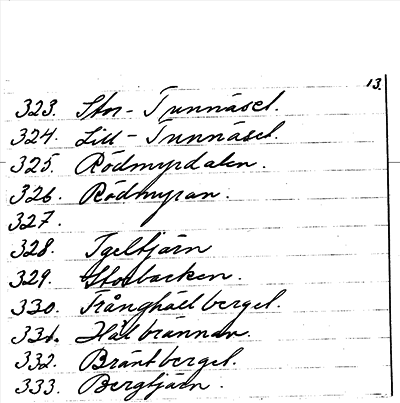 13.
323. Stor-Tunnåsel.
324. Lill-Tunnåsel.
325. Rödmyrdalen.
326. Rödmyran.
327.
328. Igeltjärn
329. Storbacken.
330. Trånghällberget.
331. Hälbrännan.
332. Bräntberget.
333. Bergtjärn.